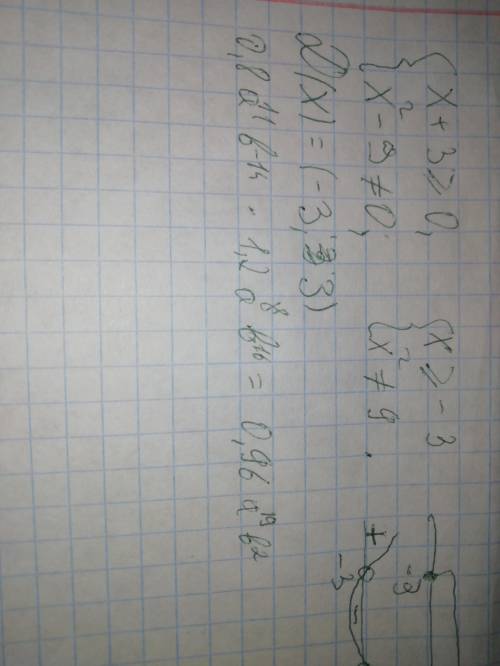 { x + 3 ≥ 0, { x ≥ -3
{ x² - 9 ≠ 0, { x² ≠ 9.
-3
+ -3 -
D(x) = (-3; 3)
0,8 a¹¹ b⁻¹⁴ · 1,2 a⁸ b¹⁶ = 0,96 a¹⁹ b²